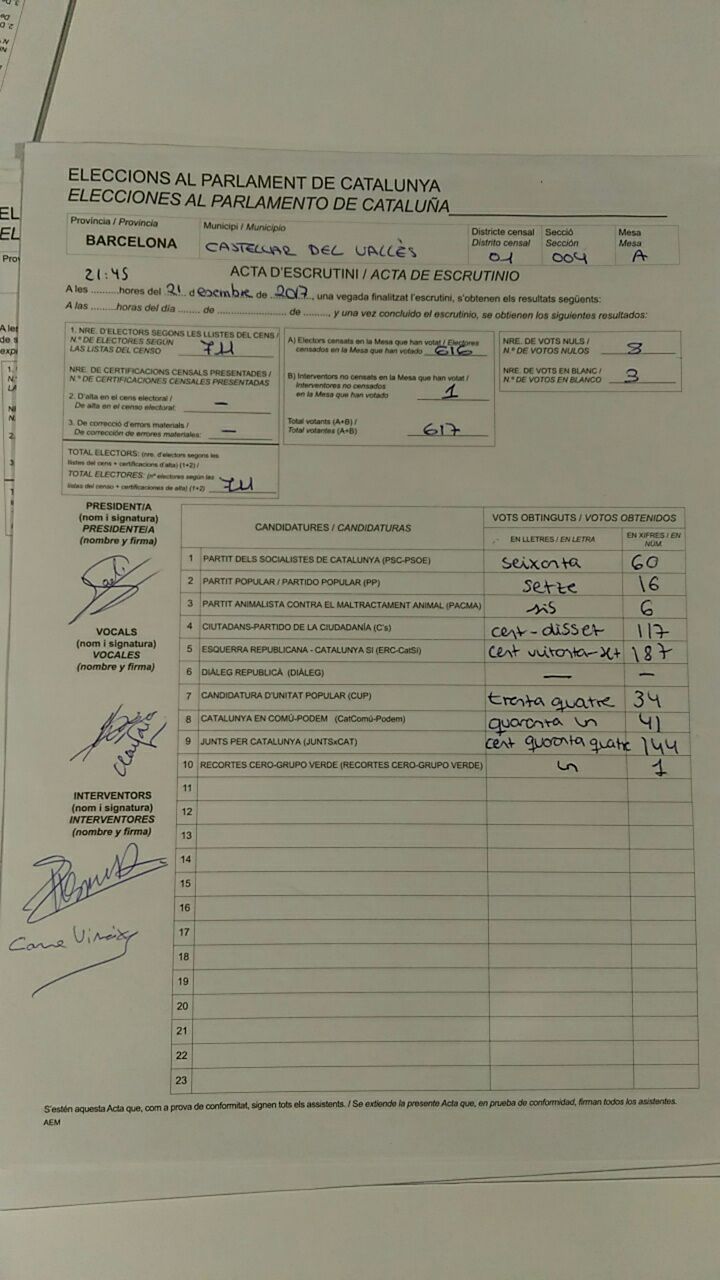 ELECCIONS AL PARLAMENT DE CATALUNYA
ELECCIONES AL PARLAMENTO DE CATALUÑA
Província / Provincia
BARCELONA
Municipi / Municipio
CASTELLAR DEL VALLÈS
Districte censal
Distrito censal
01
Secció
Sección
004
Mesa
Mesa
A
21:45
ACTA D'ESCRUTINI / ACTA DE ESCRUTINIO
A les .........hores del 21 desembre de 2017, una vegada finalitzat l'escrutini, s'obtenen els resultats següents:
A las .........horas del día ....... de ............................ de ........., y una vez concluido el escrutinio, se obtienen los siguientes resultados:
1. NRE. D'ELECTORS SEGONS LES LLISTES DEL CENS /
N.º DE ELECTORES SEGÚN
LAS LISTAS DEL CENSO 711
NRE. DE CERTIFICACIONS CENSALS PRESENTADES /
N.º DE CERTIFICACIONES CENSALES PRESENTADAS
2. D'alta en el cens electoral /
De alta en el censo electoral: —
3. De correcció d'errors materials /
De corrección de errores materiales: —
TOTAL ELECTORS: (nre. d'electors segons les
llistes del cens + certificacions d'alta) (1+2) /
TOTAL ELECTORES: (nº electores según las
listas del censo + certificaciones de alta) (1+2) 711
A) Electors censats en la Mesa que han votat / Electores
censados en la Mesa que han votado 616
B) Interventors no censats en la Mesa que han votat /
Interventores no censados
en la Mesa que han votado 1
Total votants (A+B) /
Total votantes (A+B) 617
NRE. DE VOTS NULS /
N.º DE VOTOS NULOS 8
NRE. DE VOTS EN BLANC /
N.º DE VOTOS EN BLANCO 3
PRESIDENT/A
(nom i signatura)
PRESIDENTE/A
(nombre y firma)
VOCALS
(nom i signatura)
VOCALES
(nombre y firma)
INTERVENTORS
(nom i signatura)
INTERVENTORES
(nombre y firma)
CANDIDATURES / CANDIDATURAS
VOTS OBTINGUTS / VOTOS OBTENIDOS
EN LLETRES / EN LETRA
EN XIFRES / EN NÚM.
1 PARTIT DELS SOCIALISTES DE CATALUNYA (PSC-PSOE) seixanta 60
2 PARTIT POPULAR / PARTIDO POPULAR (PP) setze 16
3 PARTIT ANIMALISTA CONTRA EL MALTRACTAMENT ANIMAL (PACMA) sis 6
4 CIUTADANS-PARTIDO DE LA CIUDADANÍA (C's) cent-disset 117
5 ESQUERRA REPUBLICANA - CATALUNYA SI (ERC-CatSí) cent vuitanta-set 187
6 DIÀLEG REPUBLICÀ (DIÀLEG) — —
7 CANDIDATURA D'UNITAT POPULAR (CUP) trenta quatre 34
8 CATALUNYA EN COMÚ-PODEM (CatComú-Podem) quaranta un 41
9 JUNTS PER CATALUNYA (JUNTSxCAT) cent quaranta quatre 144
10 RECORTES CERO-GRUPO VERDE (RECORTES CERO-GRUPO VERDE) un 1
11
12
13
14
15
16
17
18
19
20
21
22
23
S'estén aquesta Acta que, com a prova de conformitat, signen tots els assistents. / Se extiende la presente Acta que, en prueba de conformidad, firman todos los asistentes.
AEM